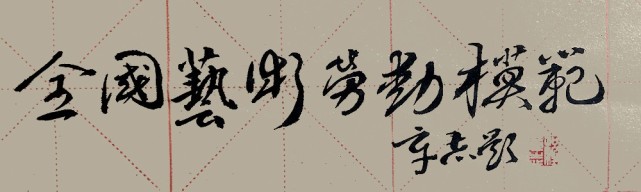 全國藝術勞動模範
辛志題